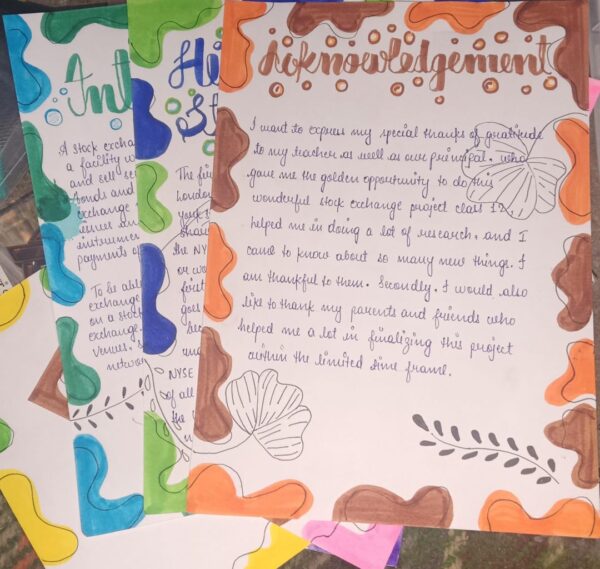 Int
A stock excha
a facility w
and sell se
bonds and
exchange
instrumen
payments of
To be abl
exchange
on a stoc
exchange.
venues.
networ
Hi
St
The fir
London
york s
the NYS
or wo
first
goes
bec
und
NYSE
of all
the
Acknowledgement
I want to express my special thanks of gratitude
to my teacher as well as our principal. who
gave me the golden opportunity to do this
wonderful stock exchange project class 12.
helped me in doing a lot of research. and I
came to know about so many new things. I
am thankful to them. Secondly. I would also
like to thank my parents and friends who
helped me a lot in finalizing this project
within the limited time frame.